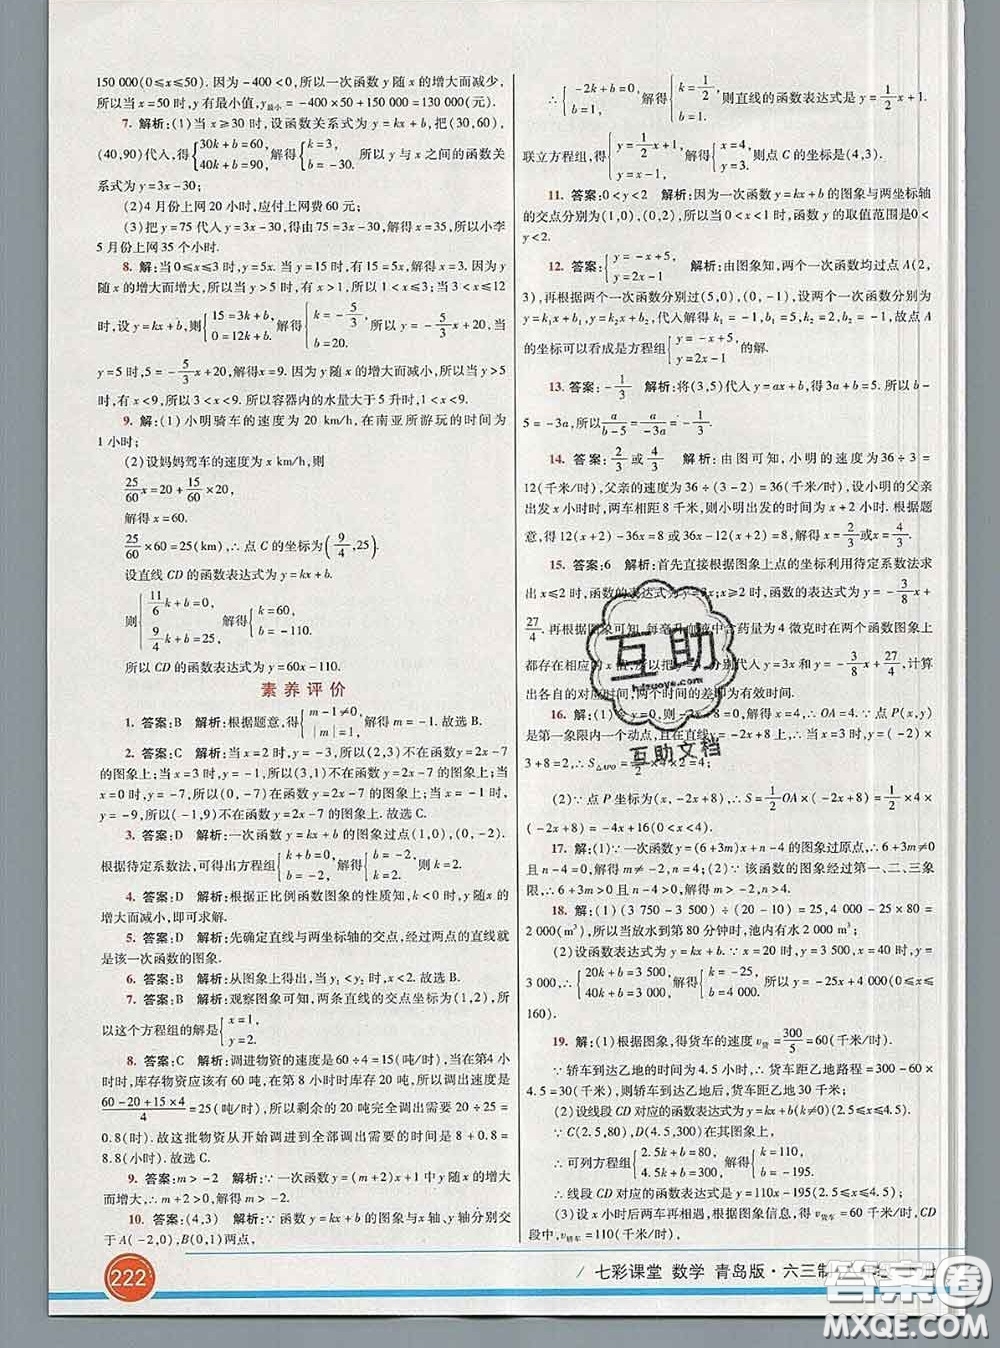 150 000(0≤x≤50). 因为-400<0,所以一次函数 y 随 x 的增大而减少,
所以当 x=50 时,y 有最小值,y最小=-400×50+150 000=130 000(元).
7. 解析:(1)当 x≥30 时,设函数关系式为 y=kx+b,把(30,60),
(40,90)代入,得{30k+b=60, 40k+b=90, 解得{k=3, b=-30. 所以 y 与 x 之间的函数关
系式为 y=3x-30;
(2)4 月份上网 20 小时,应付上网费 60 元;
(3)把 y=75 代入 y=3x-30,得由 75=3x-30,解得 x=35,所以小李
5 月份上网 35 个小时.
8. 解:当 0≤x≤3 时,y=5x. 当 y>5 时,有 5x=5,解得 x=1. 因为 y
随 x 的增大而增大,所以当 y>5 时,有 1<x≤3. 当 3≤x≤12
时,设 y=kx+b,则{15=3k+b, 0=12k+b. 解得{k=-5/3, b=20. 所以 y=-5/3x+20. 当
y=5 时,5=-5/3x+20. 解得 x=9. 因为 y 随 x 的增大而减小,所以当
y>5 时,有 3≤x<9. 所以容器内的水量大于 5 升时,1<x<9.
9. 解:(1)小明骑车的速度为 20 km/h,在南亚所游玩的时间为
1 小时;
(2)设妈妈驾车的速度为 x km/h,则
25/60x=20+15/60×20,
解得 x=60.
25/60×60=25(km),∴点 C 的坐标为(9/4,25).
设直线 CD 的函数表达式为 y=kx+b.
则{11/6k+b=0, 9/4k+b=25, 解得{k=60, b=-110.
所以 CD 的函数表达式为 y=60x-110.
素养评价
1. 答案:B 解析:根据题意,得{m-1≠0, |m|=1, 解得 m=-1. 故选 B.
2. 答案:C 解析:当 x=2 时,y=-3,所以(2,3)不在函数 y=2x-7
的图象上;当 x=3 时,y=-1,所以(3,1)不在函数 y=2x-7 的图象上;当
x=0 时,y=-7,所以(0,-7)在函数 y=2x-7 的图象上;当 x=-1 时,
y=-9,所以(-1,9)不在函数 y=2x-7 的图象上. 故选 C.
3. 答案:D 解析:一次函数 y=kx+b 的图象过点(1,0),(0,-2).
根据待定系数法,可得出方程组{k+b=0, b=-2. 解得{b=-2, k=2. 则 k=2.
4. 答案:D 解析:根据正比例函数图象的性质知,k<0 时,y 随 x 的
增大而减小,即可求解.
5. 答案:D 解析:先确定直线与两坐标轴的交点,经过两点的直线就
是该一次函数的图象.
6. 答案:B 解析:从图象上得出,当 y₁<y₂ 时,x<2. 故选 B.
7. 答案:B 解析:观察图象可知,两条直线的交点坐标为(1,2),所
以这个方程组的解是{x=1, y=2.
8. 答案:C 解析:调进物资的速度是 60÷4=15(吨/时),当在第4 小
时时,库存物资应该有 60 吨,在第 8 小时时库存 20 吨,所以调出速度是
(60-20+15×4)/4=25(吨/时),所以剩余的 20 吨完全调出需要 20÷25=
0.8(时). 故这批物资从开始调进到全部调出需要的时间是 8+0.8=
8.8(小时). 故选 C.
9. 答案:m>-2 解析:∵一次函数 y=(m+2)x+1 中 y 随 x 的增大
而增大,∴m+2>0,解得 m>-2.
10. 答案:(4,3) 解析:∵函数 y=kx+b 的图象与 x轴、y轴分别交
于 A(-2,0),B(0,1)两点,
∴{-2k+b=0, b=1, 解得{k=1/2, b=1. 则直线的函数表达式是 y=1/2x+1.
联立方程组,得{y=1/2x+1, y=x-1, 解得{x=4, y=3. 则点 C 的坐标是(4,3).
11. 答案:0<y<2 解析:因为一次函数 y=kx+b 的图象与两坐标轴
的交点分别为(1,0),(0,2),所以当 0<x<1 时,函数 y 的取值范围是0<
y<2.
12. 答案:{y=-x+5, y=2x-1 解析:由图象知,两个一次函数均过点 A(2,
3),再根据两个一次函数分别过(5,0),(0,-1),设两个一次函数分别为
y=k₁x+b₁,y=k₂x+b₂,代入解得 k₁=-1,b₁=5,k₂=2,b₂=-1,故点 A
的坐标可以看成是方程组{y=-x+5, y=2x-1 的解.
13. 答案:-1/3 解析:将(3,5)代入 y=ax+b,得 3a+b=5. 所以 b-
5=-3a,所以a/(b-5)=a/(-3a)=-1/3.
14. 答案:2/3或4/3 解析:由图可知,小明的速度为 36÷3=
12(千米/时),父亲的速度为 36÷(3-2)=36(千米/时),设小明的父亲
出发 x 小时时,两车相距 8 千米,则小明出发的时间为 x+2 小时. 根据题
意,得 12(x+2)-36x=8 或 36x-12(x+2)=8,解得 x=2/3或 x=4/3.
15. 答案:6 解析:首先直接根据图象上点的坐标利用待定系数法求
出 x≤2 时,函数的表达式为 y=3x;x≥2 时,函数的表达式为 y=-3/8x+
27/4. 再根据图象可知,每毫升血液中含药量为 4 微克时在两个函数图象上
都存在相应的 x 值,所以把 y=4 分别代入 y=3x 和 y=-3/8x+27/4,计算
出各自的对应时间,两个时间的差即为有效时间.
16. 解:(1)令 y=0,则 x=4,∴OA=4. ∵点 P(x,y)
是第一象限内一个动点,且在直线 y=-2x+8 上,∴当 x=3 时,y=-2×
3+8=2,∴S△APO=1/2×4×2=4.
(2)∵点 P 坐标为(x,-2x+8),∴S=1/2OA×(-2x+8)=1/2×4×
(-2x+8)=-4x+16(0<x<4).
17. 解:(1)∵一次函数 y=(6+3m)x+m-2 的图象过原点,∴6+3m≠0
且 m-2=0,解得 m≠-2,m=2;(2)∵该函数的图象经过第一、二、三象
限,∴6+3m>0 且 m-2>0,解得 m>-2,m>2,∴m>2.
18. 解:(1)(3 750-3 500)÷(20-10)=25,4 000-25×80=
2 000(m³),所以当放水到第 80 分钟时,池内有水 2 000 m³;
(2)设函数表达式为 y=kx+b. ∵x=20 时,y=3 500,x=40 时,y=
3 000,∴{20k+b=3 500, 40k+b=3 000, 解得{k=-25, b=4 000, ∴y=-25x+4 000(0≤x≤
160).
19. 解:(1)根据图象,得货车的速度 v货=300/5=60(千米/时),
∵轿车到达乙地的时间为 4.5 小时,∴货车距乙地路程=300-60×
4.5=30(千米),则轿车到达乙地后,货车距乙地 30 千米;
(2)设线段 CD 对应的函数表达式为 y=kx+b(k≠0)(2.5≤x≤4.5).
∵C(2.5,80),D(4.5,300)在其图象上,
∴可列方程组{2.5k+b=80, 4.5k+b=300, 解得{k=110, b=-195,
∴线段 CD 对应的函数表达式是 y=110x-195(2.5≤x≤4.5);
(3)设 x 小时后两车再相遇,根据图象信息,得 v货车=60 千米/时,CD
段中,v轿车=110(千米/时),
222
七彩课堂 数学 青岛版·六三制
互助
hdzuoye.com
互助文档
答案圈
MXQE.COM